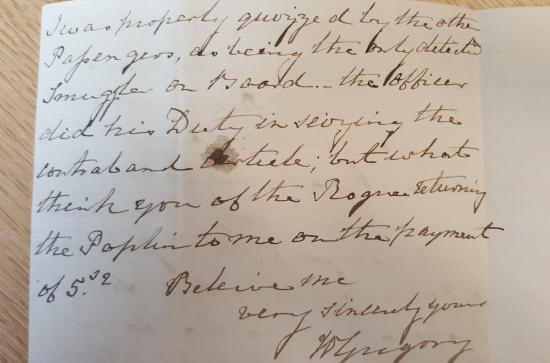 I was properly quizzed by the other
Passengers, as being the only detected
Smuggler on Board. - the Officer
did his Duty in seizing the
contraband Article; but what
think you of the Rogue returning
the Poplin to me on the payment
of 5.s?
Beleive me
very sincerely yours
Gregory